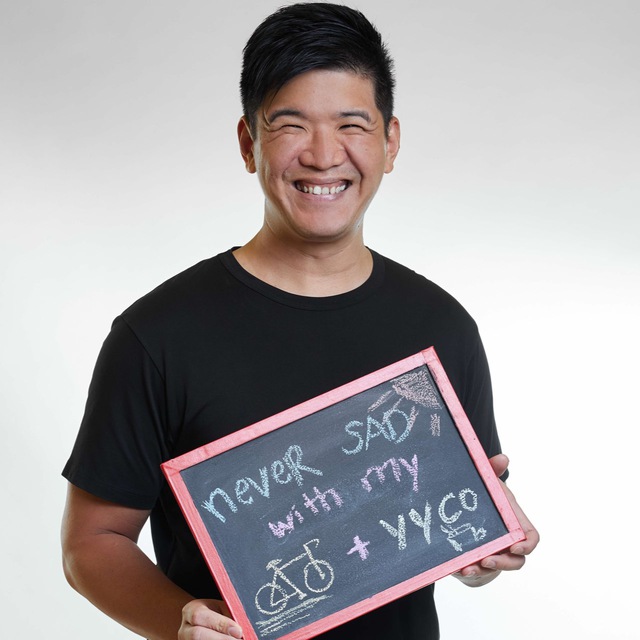 never SAD
with my
+ YYCO